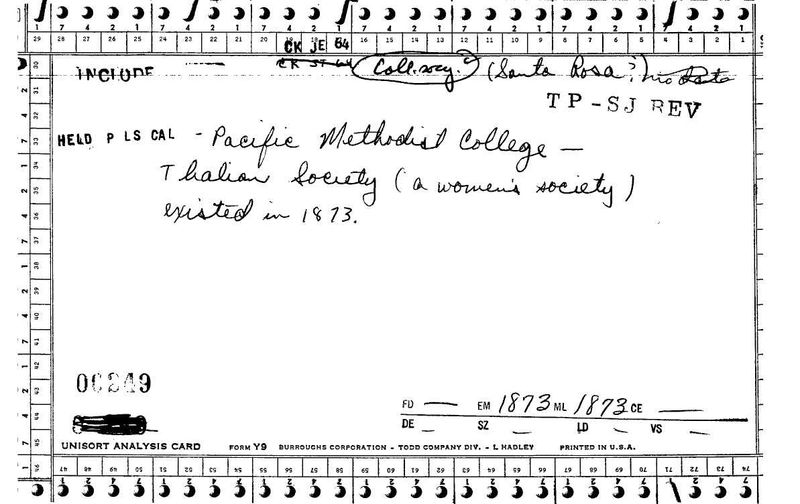 1 7 4 2 1 7 4 2 1 7 4 2 1 7 4 2 1 7 4 2 1 7 4 2 1
29 28 27 26 25 24 23 22 21 20 16 15 14 13 12 11 10 9 8 7 6 5 4 3 2 1
CK JE 64
INCLUDE CK ST 64 Coll. socy.? (Santa Rosa?) no data
TP-SJ REV
HELD P LS CAL - Pacific Methodist College —
Thalian Society (a women's society)
existed in 1873.
00249
FD — EM 1873 ML 1873 CE —
DE — SZ — LD — VS —
UNISORT ANALYSIS CARD FORM Y9 BURROUGHS CORPORATION - TODD COMPANY DIV. - L HADLEY PRINTED IN U.S.A.
47 48 49 50 51 52 53 54 55 56 57 58 59 60 61 62 63 64 65 66 67 68 69 70 71 72 73 74